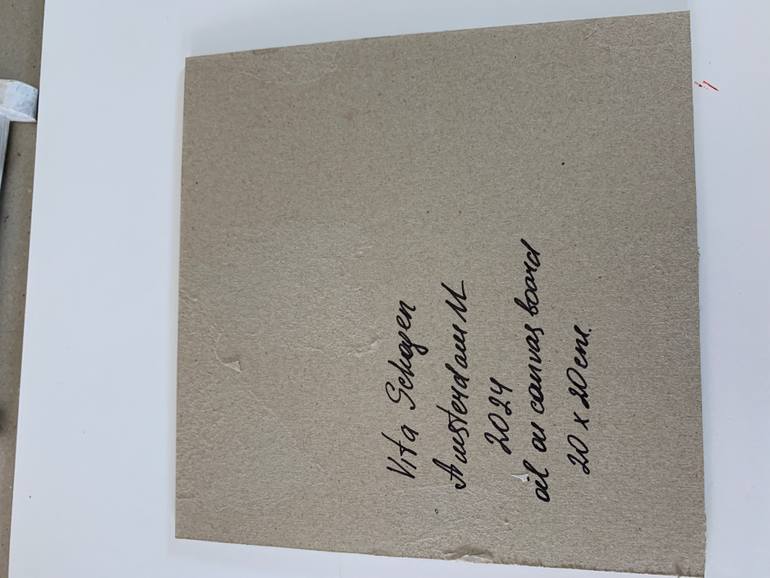 Vita Schagen
Amsterdam NL
2024
oil on canvas board
20 x 20 cm.